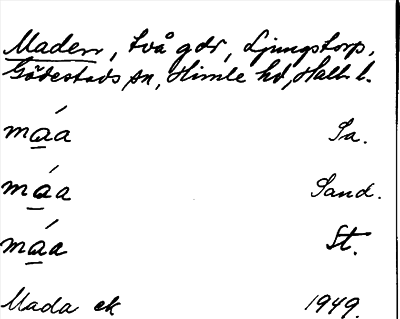 Maden, två gdr, Ljungstorp,
Gödestads sn, Himle hd, Hall. l.
máa Sa.
máa Sand.
máa St.
Mada ek 1949.